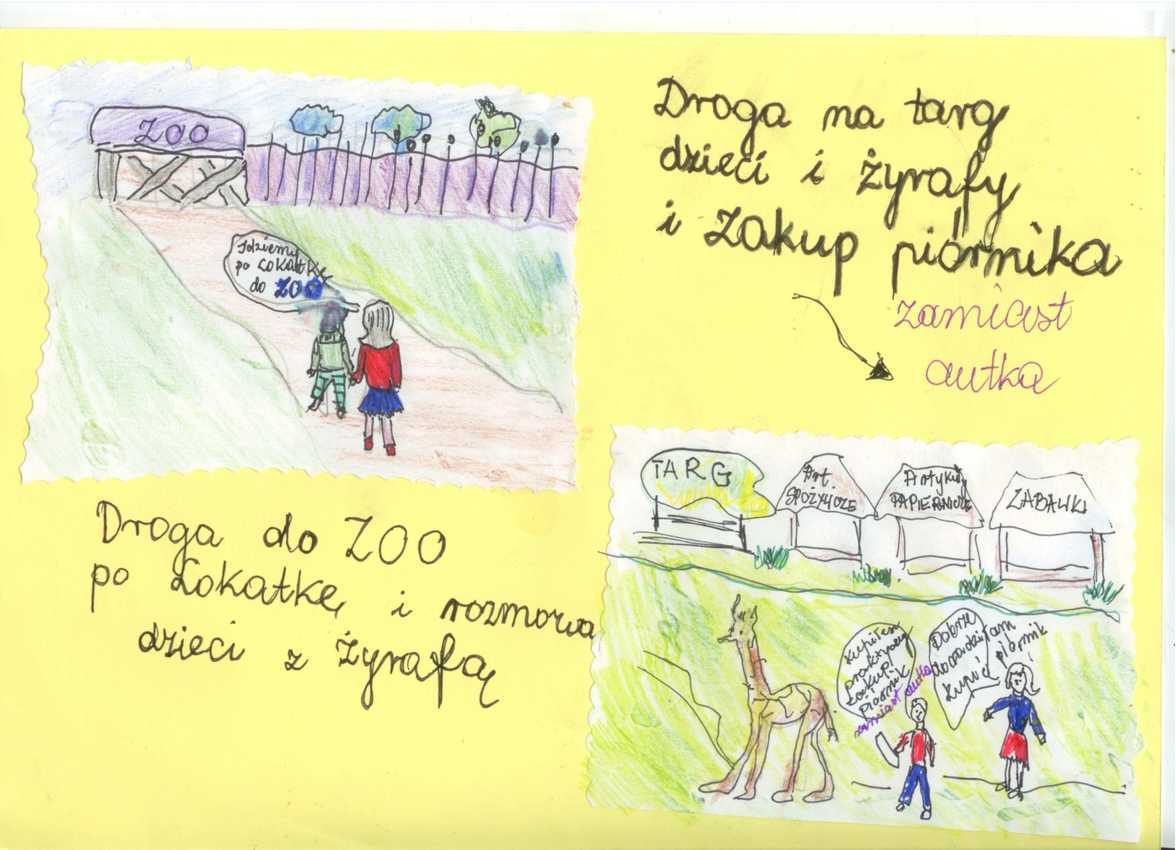 ZOO
Idziemy
po Lokatkę
do ZOO
Droga do ZOO
po Lokatkę i rozmowa
dzieci z żyrafą
Droga na targ
dzieci i żyrafy
i zakup piórnika
zamiast
autka
TARG
Art.
SPOŻYWCZE
Artykuły
PAPIERNICZE
ZABAWKI
Kupiłem
praktyczny
zakup!
Piórnik
zamiast autka
Dobrze
kupić piórnik